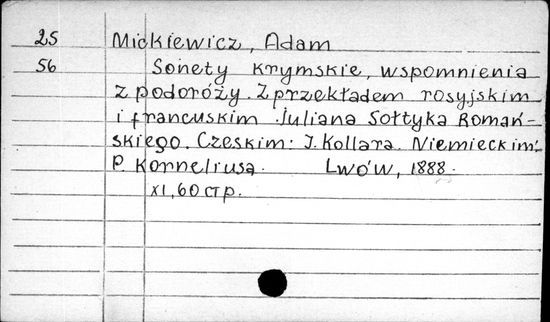 25 Mickiewicz, Adam
56 Sonety Krymskie, wspomnienia
z podoróży. Z przekładem rosyjskim
i francuskim Juliana Sołtyka Romań-
skiego. Czeskim: J. Kollara. Niemieckim:
P. Korneliusa. Lwów, 1888.
XI, 60 стр.